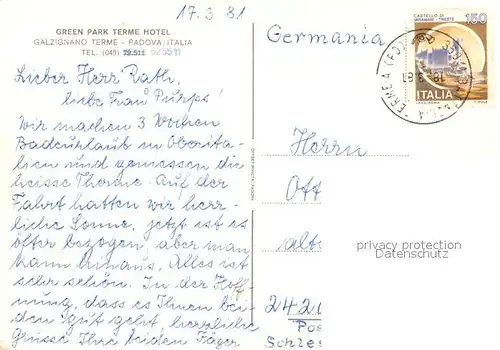 17.3 81
GREEN PARK TERME HOTEL
GALZIGNANO TERME - PADOVA/ITALIA
TEL. (049)
Lieber Herr Rath,
liebe Frau
Wir machen 3 Wochen
Badeurlaub in Oberita-
lien und geniessen die
heisse Therme. Auf der
Fahrt hatten wir herr-
liche Sonne, jetzt ist es
öfter bezogen, aber man
kann hinaus. Alles ist
sehr schön. In der Hoff-
nung, dass es Ihnen bei-
den gut geht herzliche
Grüsse Ihre beiden Jäger
Germania
CASTELLO DI
MIRAMARE - TRIESTE
150
ITALIA
Herrn
Ott
alt
privacy protection
Datenschutz
242
Pos
Schles